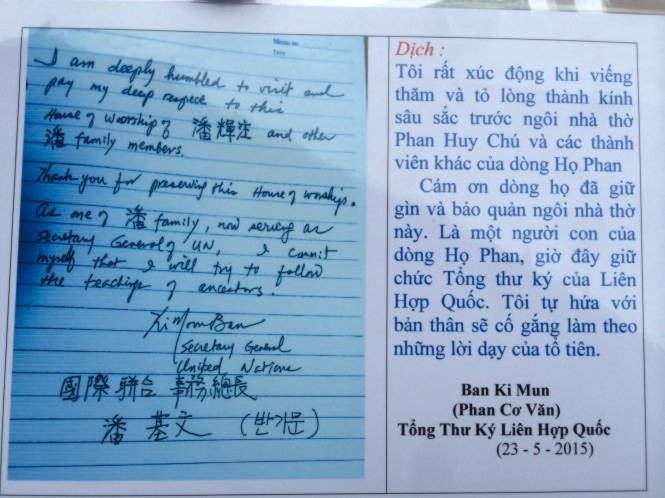 Memo no.
Date
I am deeply humbled to visit and
pay my deep respect to this
House of worship of 潘輝注 and other
潘 family members.
Thank you for preserving this House of worships.
As one of 潘 family, now serving as
Secretary General of UN, I commit
myself that I will try to follow
the teachings of ancestors.
Ki Moon Ban
Secretary General
United Nations
國際 聯合 事務總長
潘 基文 (반기문)
Dịch :
Tôi rất xúc động khi viếng
thăm và tỏ lòng thành kính
sâu sắc trước ngôi nhà thờ
Phan Huy Chú và các thành
viên khác của dòng Họ Phan
Cám ơn dòng họ đã giữ
gìn và bảo quản ngôi nhà thờ
này. Là một người con của
dòng Họ Phan, giờ đây giữ
chức Tổng thư ký của Liên
Hợp Quốc. Tôi tự hứa với
bản thân sẽ cố gắng làm theo
những lời dạy của tổ tiên.
Ban Ki Mun
(Phan Cơ Văn)
Tổng Thư Ký Liên Hợp Quốc
(23 - 5 - 2015)